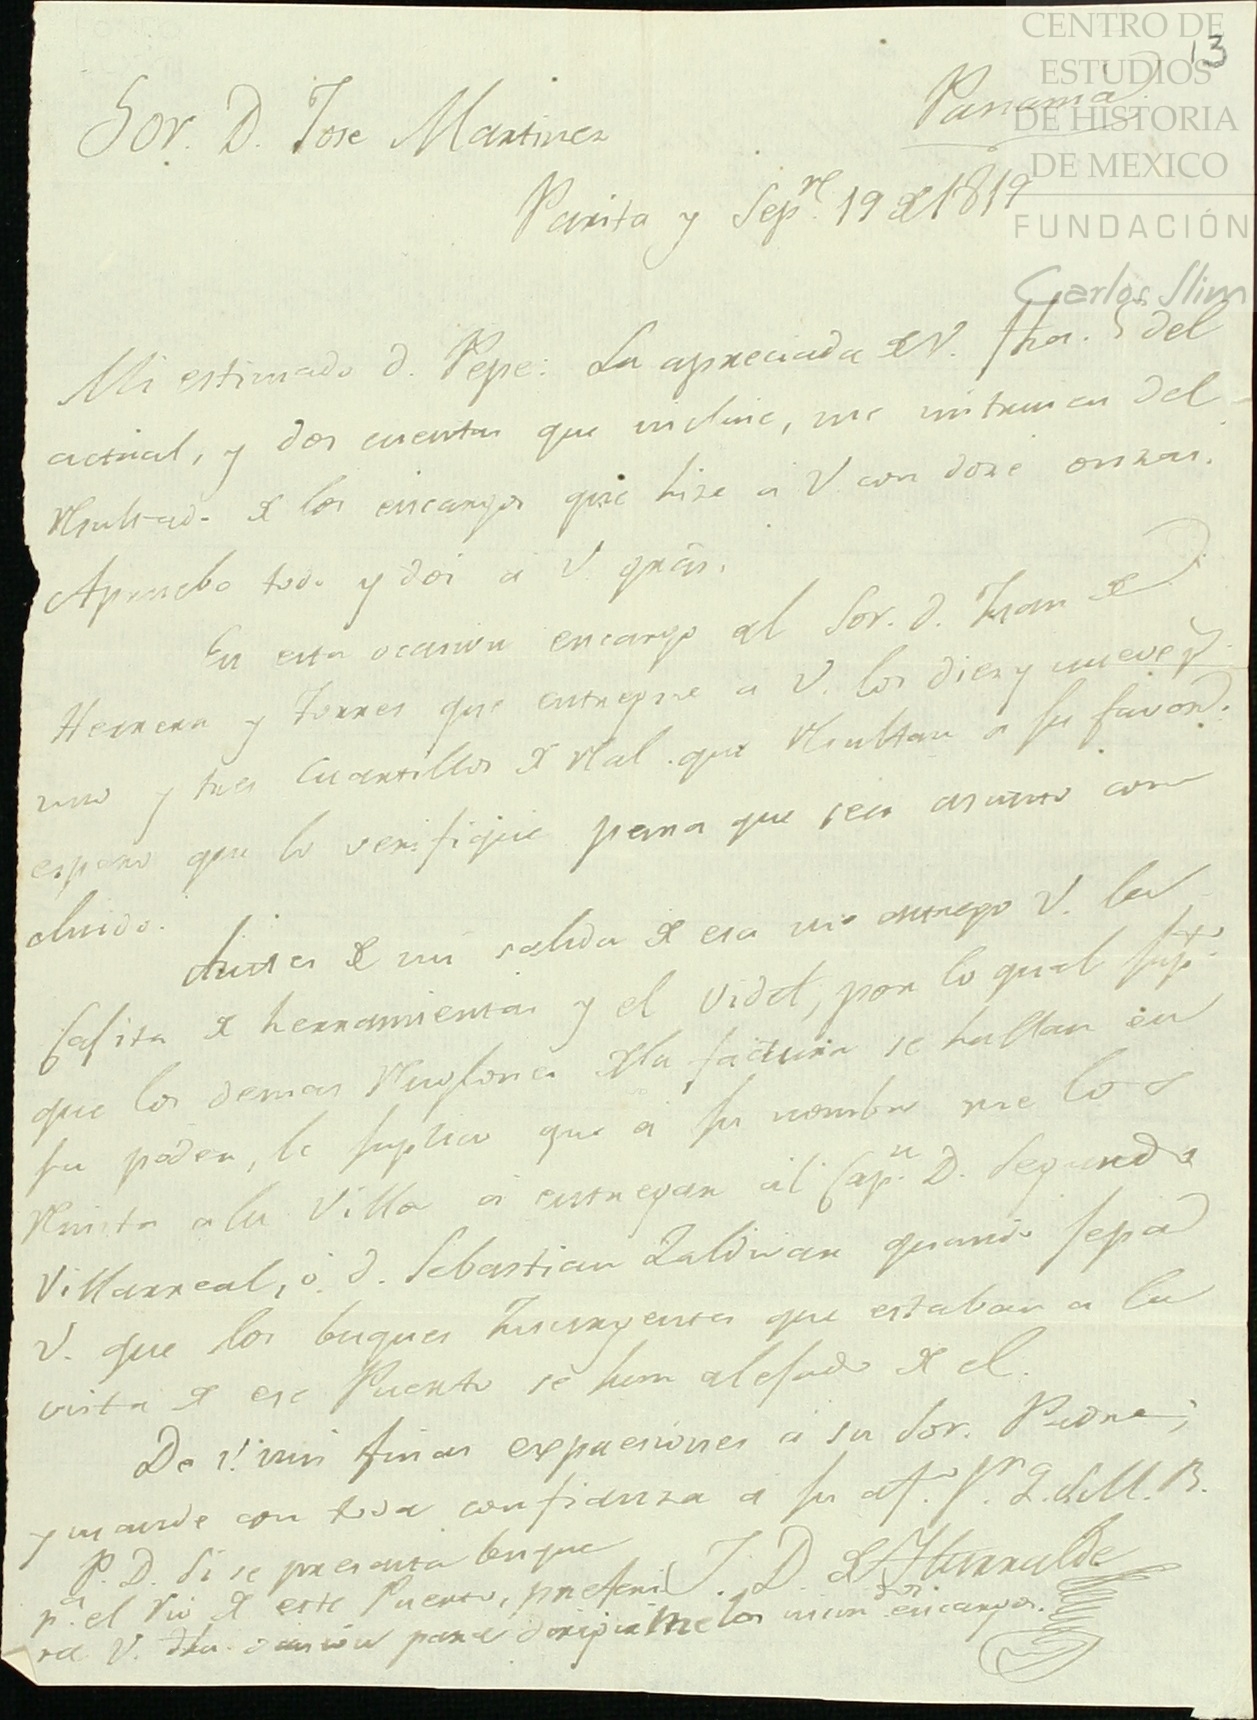 13
CENTRO DE
ESTUDIOS
DE HISTORIA
DE MEXICO
FUNDACIÓN
Carlos Slim
Panama
Sor. D. Jose Martinez
Parita y Sepre. 19 de 1819
Mi estimado d. Pepe: La apreciada de V. fha. 5 del
actual, y dos cuentas que incluie, me instruien del
resultado de los encargos que hize a V. con doze onzas.
Apruebo todo y doi a V. gras.
En esta ocasion encargo al Sor. d. Juan de
Herrera y Torres que entregue a V. los diez y nueve p.
uno y tres Cuartillos de real que resultan a su favor.
espero que lo verifique para que sea asunto con
cluido.
Antes de mi salida de esa me entregó V. la
Cafita de herramientas y el Videt, por lo qual supto.
que los demas de la factura se hallan en
su poder, le suplico que a su nombre me los
remita a la Villa a entregar al Capn. D. Segundo
Villarreal, ó d. Sebastian Zaldivar quando sepa
V. que los buques Insurgentes que estaban a la
vista de ese Puerto se han alefado de el.
De V. mis finas expresiones a su Sor. Padre;
y mande con toda confianza a su afo. Sr. Q. S. M. B.
J. D. de Iturralde
P. D. Si se presenta buque
pa. el rio de este Puerto, preferi
ra V. dha. ocasion para dirigirmelos encargos.